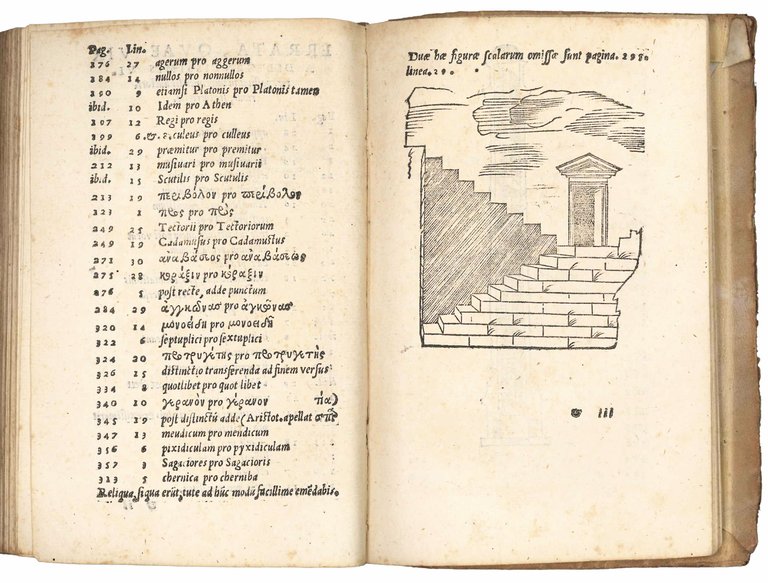 Pag. Lin.
176 27 agerum pro aggerum
184 14 nullos pro nonnullos
190 9 etiamsi Platonis pro Platonis tamen
ibid. 10 Idem pro Athen
107 12 Regi pro regis
199 6.&.2. culeus pro culleus
ibid. 29 præmitur pro premitur
212 13 musiuari pro musiuarii
ibid. 15 Scutilis pro Scutulis
213 19 περιβόλον pro περίβολον
223 1 πὼς pro πῶς
249 25 Tectorii pro Tectoriorum
249 19 Cadamusus pro Cadamustus
271 30 αναβάσιος pro ἀναβάσεως
275 28 pro κόραξιν
276 5 post recte, adde punctum
284 29 pro ἀγκῶνας
320 14 μονοείδη pro μονοειδῆ
322 6 septuplici pro sextuplici
324 20 pro
326 15 distinctio transferenda ad finem versus
334 8 quotlibet pro quot libet
340 10 γερανὸν pro γέρανον
345 19 post distinctū adde, (Aristot. apellat
347 13 meudicum pro mendicum
356 6 pixidiculam pro pyxidiculam
357 3 Sagaciores pro Sagacioris
313 5 chernica pro cherniba
Reliqua, siqua erūt, tute ad hūc modū facillime emēdabis.
Duæ hæ figuræ scalarum omissæ sunt pagina. 298.
linea. 29.
III